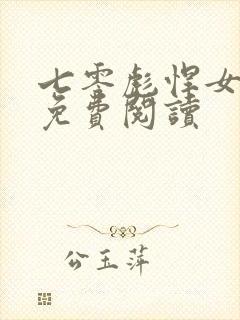 七零彪悍女
免費閱讀
公玉萍